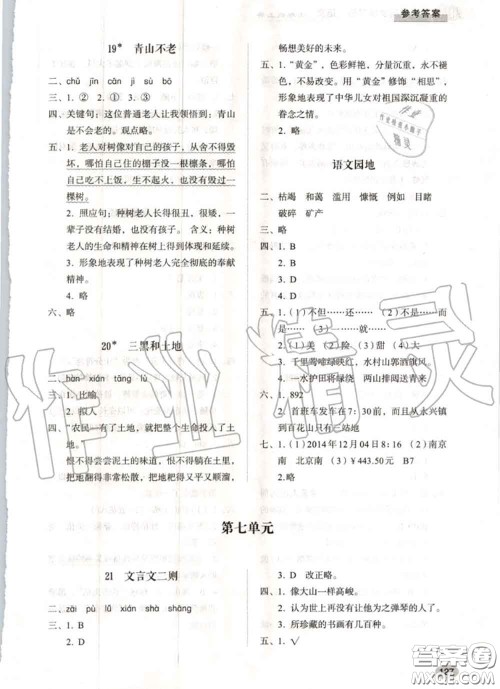 参考答案
19* 青山不老
二、zhǔ jīn cān jì sù bō
三、1. ② 2. ① 3. ③
四、关键句：这位普通老人让我领悟到：青山
是不会老的。观点略。
五、1. 老人对树像对自己的孩子，从舍不得毁
坏，哪怕自己住的棚子没一根檩条，哪怕
自己吃不上饭，生不起火，也没有毁过一
棵树。
2. 照应句：种树老人长得很丑，很矮，一
辈子没有结婚，也没有孩子。含义：种树
老人的生命和精神在树上得到体现和延续。
3. 形象地表现了种树老人完全彻底的奉献
精神。
4. 略
六、略
20* 三黑和土地
二、hàn xián tāng lù
三、1. 比喻。
2. 拟人。
四、“农民一有了土地，就把整个生命投入了土
地。
恨不得尝尝泥土的味道，恨不得翻个滚儿。
把地翻得非常松散，把地耙得又平又顺溜。
畅想美好的未来。
五、1. “黄金”，色彩鲜艳，分量沉重，永不褪
色，不易改变。用“黄金”修饰“相思”，
形象地表现了中华儿女对祖国深沉凝重的
眷念之情。
2. 略
语文园地
二、枯竭 和蔼 滥用 慷慨 例如 目睹
破碎 矿产
四、1. B
2. B
3. D
4. A
五、1. (1) 不但……还…… (2) 不是……而
是…… (3) 虽然……但……
2. (1) 美 (2) 险 (3) 奇 (4) 阔
3. 千里莺啼绿映红，水村山郭酒旗风。
4. 一水护田将绿绕 两山排闼送青来
六、1. 892
2. 首班车发车于 7：30 前，而且从永兴镇
到百花山只有三站地
七、1. (1) 2014 年 12 月 04 日 8：16 (2) 南京
南 北京南 (3) ￥443.50 元 B7
2. 略
第七单元
21 文言文二则
二、zāi pù lǚ xián shà shàng
三、1. B
2. D
3. D 改正略。
四、1. 像大山一样高峻。
2. 认为世界上再也没有值得他为之弹琴的人了。
3. 所珍藏的书画有几百种。
五、1. √
作业精灵
答案圈
MXQE.COM